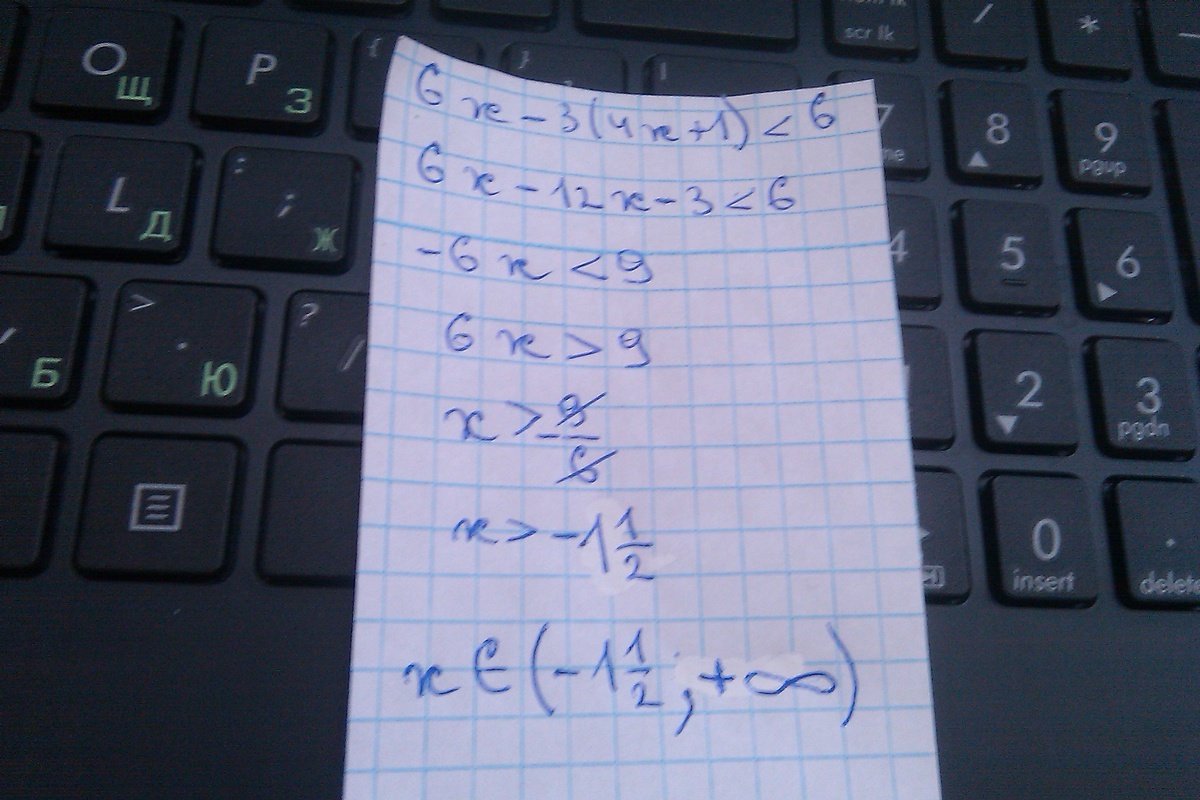 6x-3(4x+1)<6
6x-12x-3<6
-6x<9
6x>9
x>-9/6
x>-1 1/2
x∈(-1 1/2;+∞)
О Щ
P З
{
}
|
scr lk
/
*
7
8
9
pgup
L Д
: ; Ж
4
5
6
Б
> . Ю
? /
2
3
pgdn
0
insert
.
delete